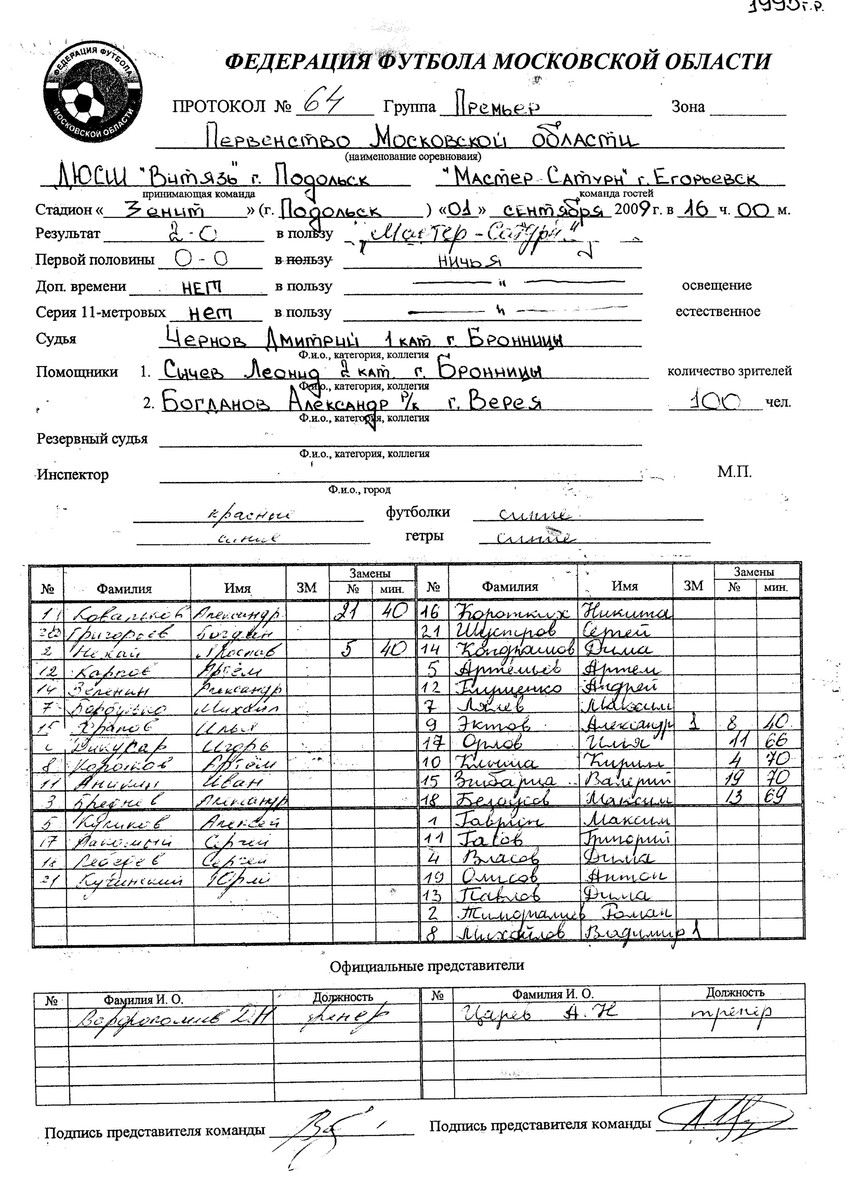 1995г.р.
ФЕДЕРАЦИЯ ФУТБОЛА МОСКОВСКОЙ ОБЛАСТИ
ФЕДЕРАЦИЯ ФУТБОЛА
МОСКОВСКОЙ ОБЛАСТИ
ПРОТОКОЛ № 64 Группа Премьер Зона
Первенство Московской области
(наименование соревнования)
ДЮСШ "Витязь" г. Подольск "Мастер-Сатурн" г. Егорьевск
принимающая команда команда гостей
Стадион « Зенит » (г. Подольск ) «01» сентября 2009 г. в 16 ч. 00 м.
Результат 2-0 в пользу "Мастер-Сатурн"
Первой половины 0-0 в пользу ничья
Доп. времени нет в пользу — " — освещение
Серия 11-метровых нет в пользу — " — естественное
Судья Чернов Дмитрий 1 кат г. Бронницы
Ф.и.о., категория, коллегия
Помощники 1. Сычев Леонид 2 кат. г. Бронницы количество зрителей
Ф.и.о., категория, коллегия
2. Богданов Александр Р/к г. Верея 100 чел.
Ф.и.о., категория, коллегия
Резервный судья
Ф.и.о., категория, коллегия
Инспектор М.П.
Ф.и.о., город
красный футболки синие
синие гетры синие
№ Фамилия Имя ЗМ Замены № мин. № Фамилия Имя ЗМ Замены № мин.
Ковальков Александр 21 40 16 Коротких Никита
Григорьев Богдан 21 Шустров Сергей
2 Нехай 5 40 14 Кондрашов Дима
12 Карпов Артём 5 Артемьев Артем
14 Зеленин Александр 12 Андрей
7 Михаил 7 Лялев Максим
15 Храпов Илья 9 Эктов Александр 1 8 40
Дикусар Игорь 17 Орлов Илия 11 66
8 Коротков Артём 10 Клыша Кирилл 4 70
11 Аникин Иван 15 Валерий 19 70
3 Бреднев Александр 18 Белоусов Максим 13 69
5 Куликов Алексей 1 Гаврин Максим
17 Сергей 11 Григорий
18 Сергей 4 Власов Дима
21 Кучинский Юрий 19 Антон
13 Павлов Дима
2 Роман
8 Михайлов Владимир 1
Официальные представители
№ Фамилия И. О. Должность № Фамилия И. О. Должность
тренер Царев А.Н тренер
Подпись представителя команды Подпись представителя команды